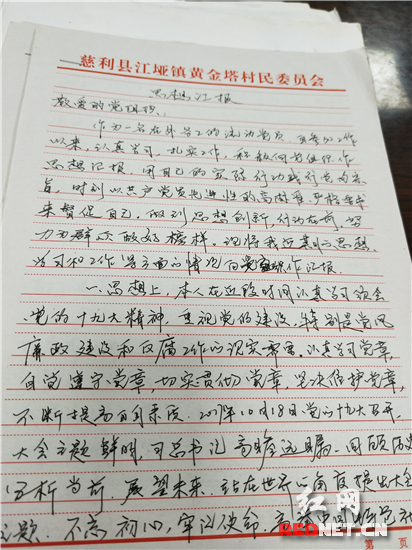 慈利县江垭镇黄金塔村民委员会
思想汇报
敬爱的党组织:
作为一名在外务工的流动党员,自参加工作
以来,认真学习,扎实工作,积极向党组织作
思想汇报,用自己的实际行动践行党的宗
旨,时刻以共产党员先进性的高标准,严格要求
来督促自己,做到思想创新,行动在前,努
力为群众做好榜样。现将我近期的思想、
学习和工作等方面的情况向党组织作汇报。
一、思想上,本人在近段时间认真学习领会
党的十九大精神,重视党的建设,特别是党风
廉政建设和反腐工作的现实需要。认真学习党章,
自觉遵守党章,切实贯彻党章,坚决维护党章,
不断提高自身素质。2017年10月18日党的十九大召开,
大会主题鲜明,习总书记高瞻远瞩,回顾历史
分析当前,展望未来,站在世界的角度提出大会
主题,不忘初心,牢记使命,
红网
rednet.cn
第 页